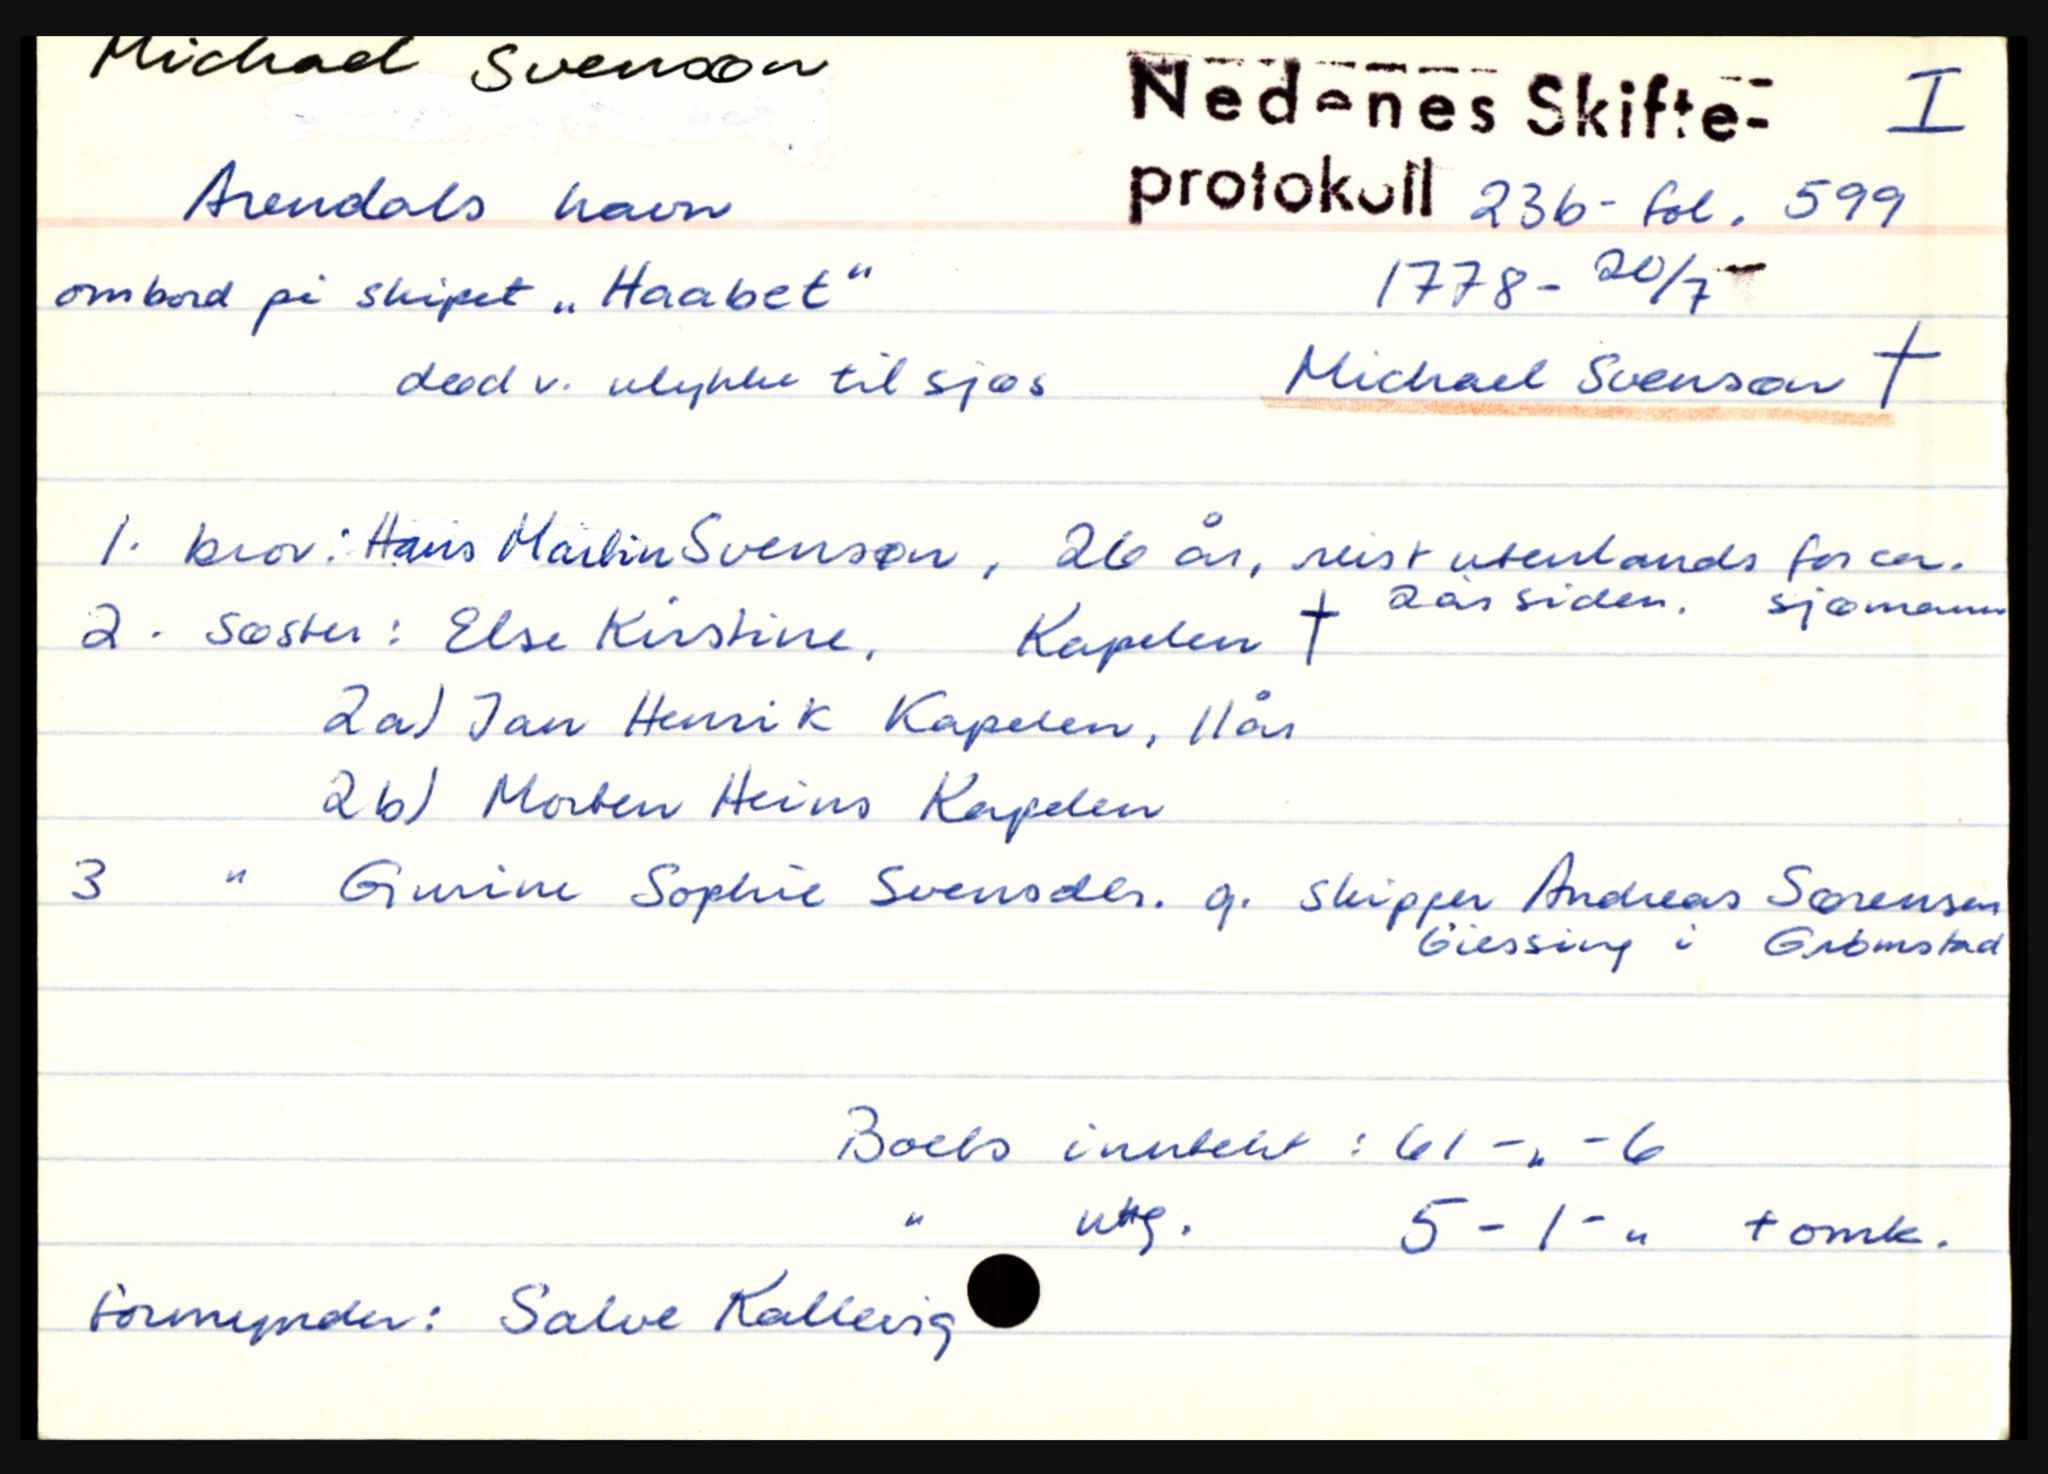 Michael Svenson
Nedenes Skifte- I
protokoll 23b- fol. 599
Arendals havn
1778- 20/7
ombord på skipet „Haabet"
død v. ulykke til sjøs
Michael Svenson †
1. bror: Hans Martin Svenson, 26 år, reist utenlands for ca.
2 år siden. sjømann
2. søster: Else Kirstine, Kapelen †
2a) Jan Henrik Kapelen, 11 år
2b) Morten Heins Kapelen
3 " Gurine Sophie Svensdtr. g. skipper Andreas Sørensen
Giessing i Grømstad
Boets inntekt: 61 - „ - 6
" utg. 5 - 1 - „ + omk.
Formynder: Salve Kallevig